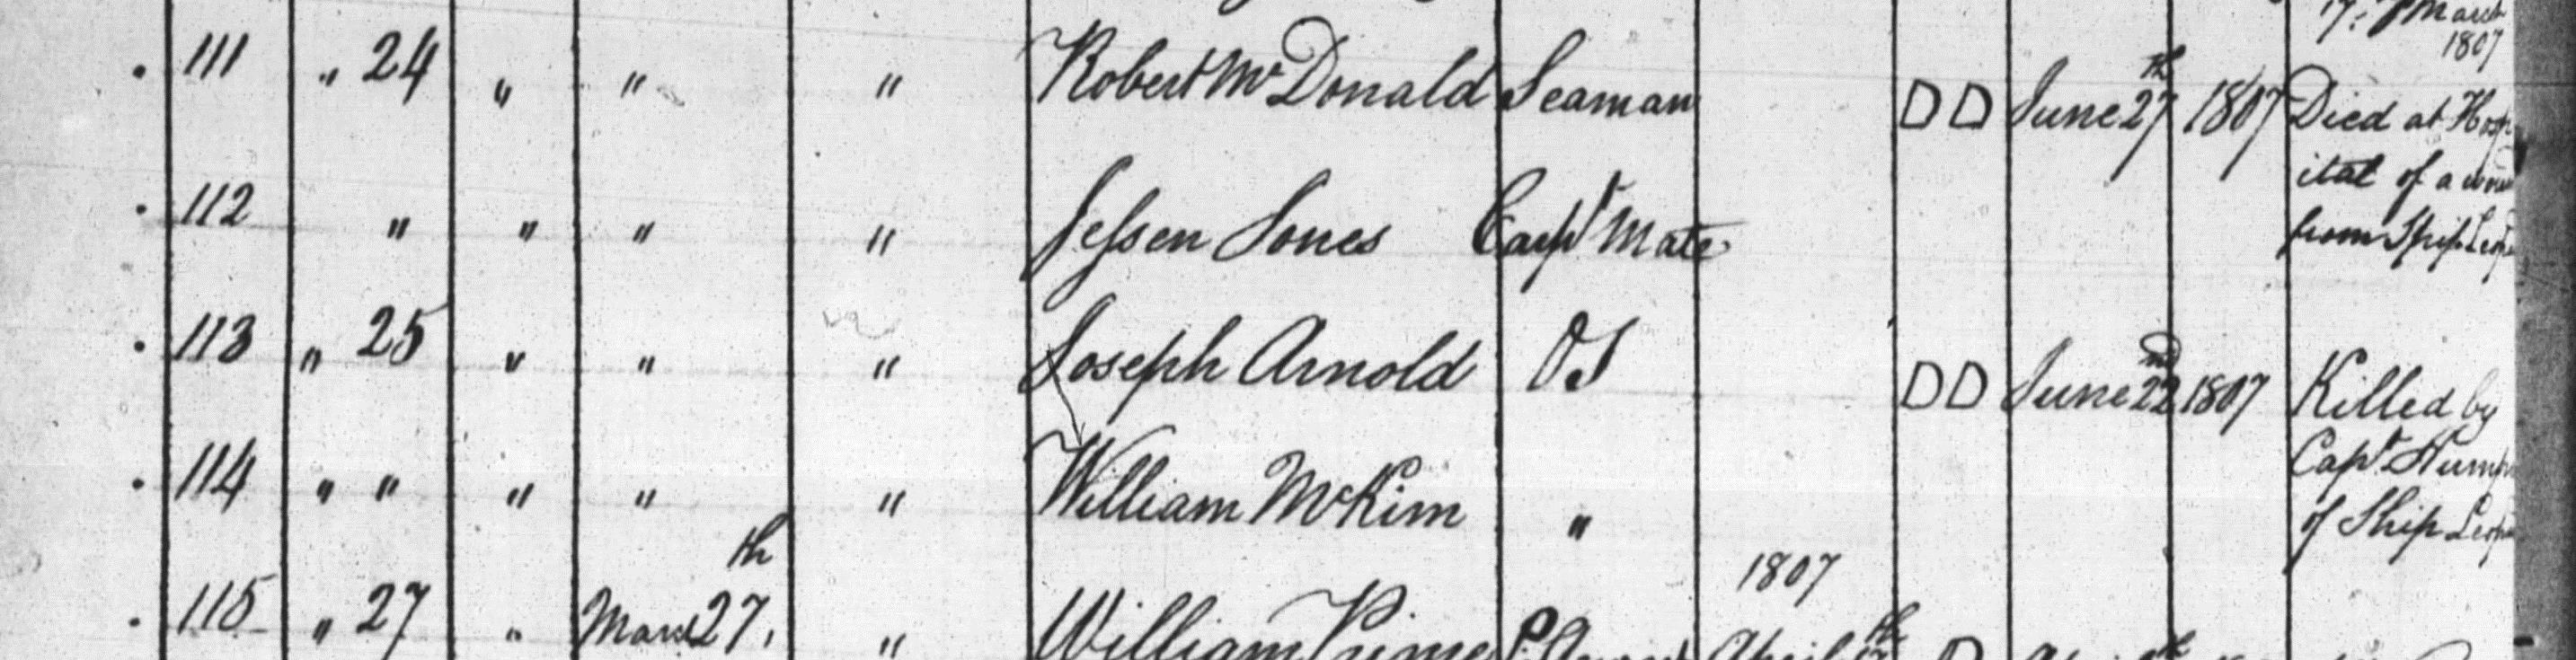 17: March
1807
111 " 24 " " " Robert McDonald Seaman DD June 27th 1807 Died at Hosp
ital of a woun
from Ship Leop
112 " " " " Jessen Jones Carpt Mate
113 " 25 " " " Joseph Arnold OS DD June 22nd 1807 Killed by
Capt Hump
of Ship Leop
114 " " " " " William McKim "
1807
115 " 27 " March 27th " William Prime April